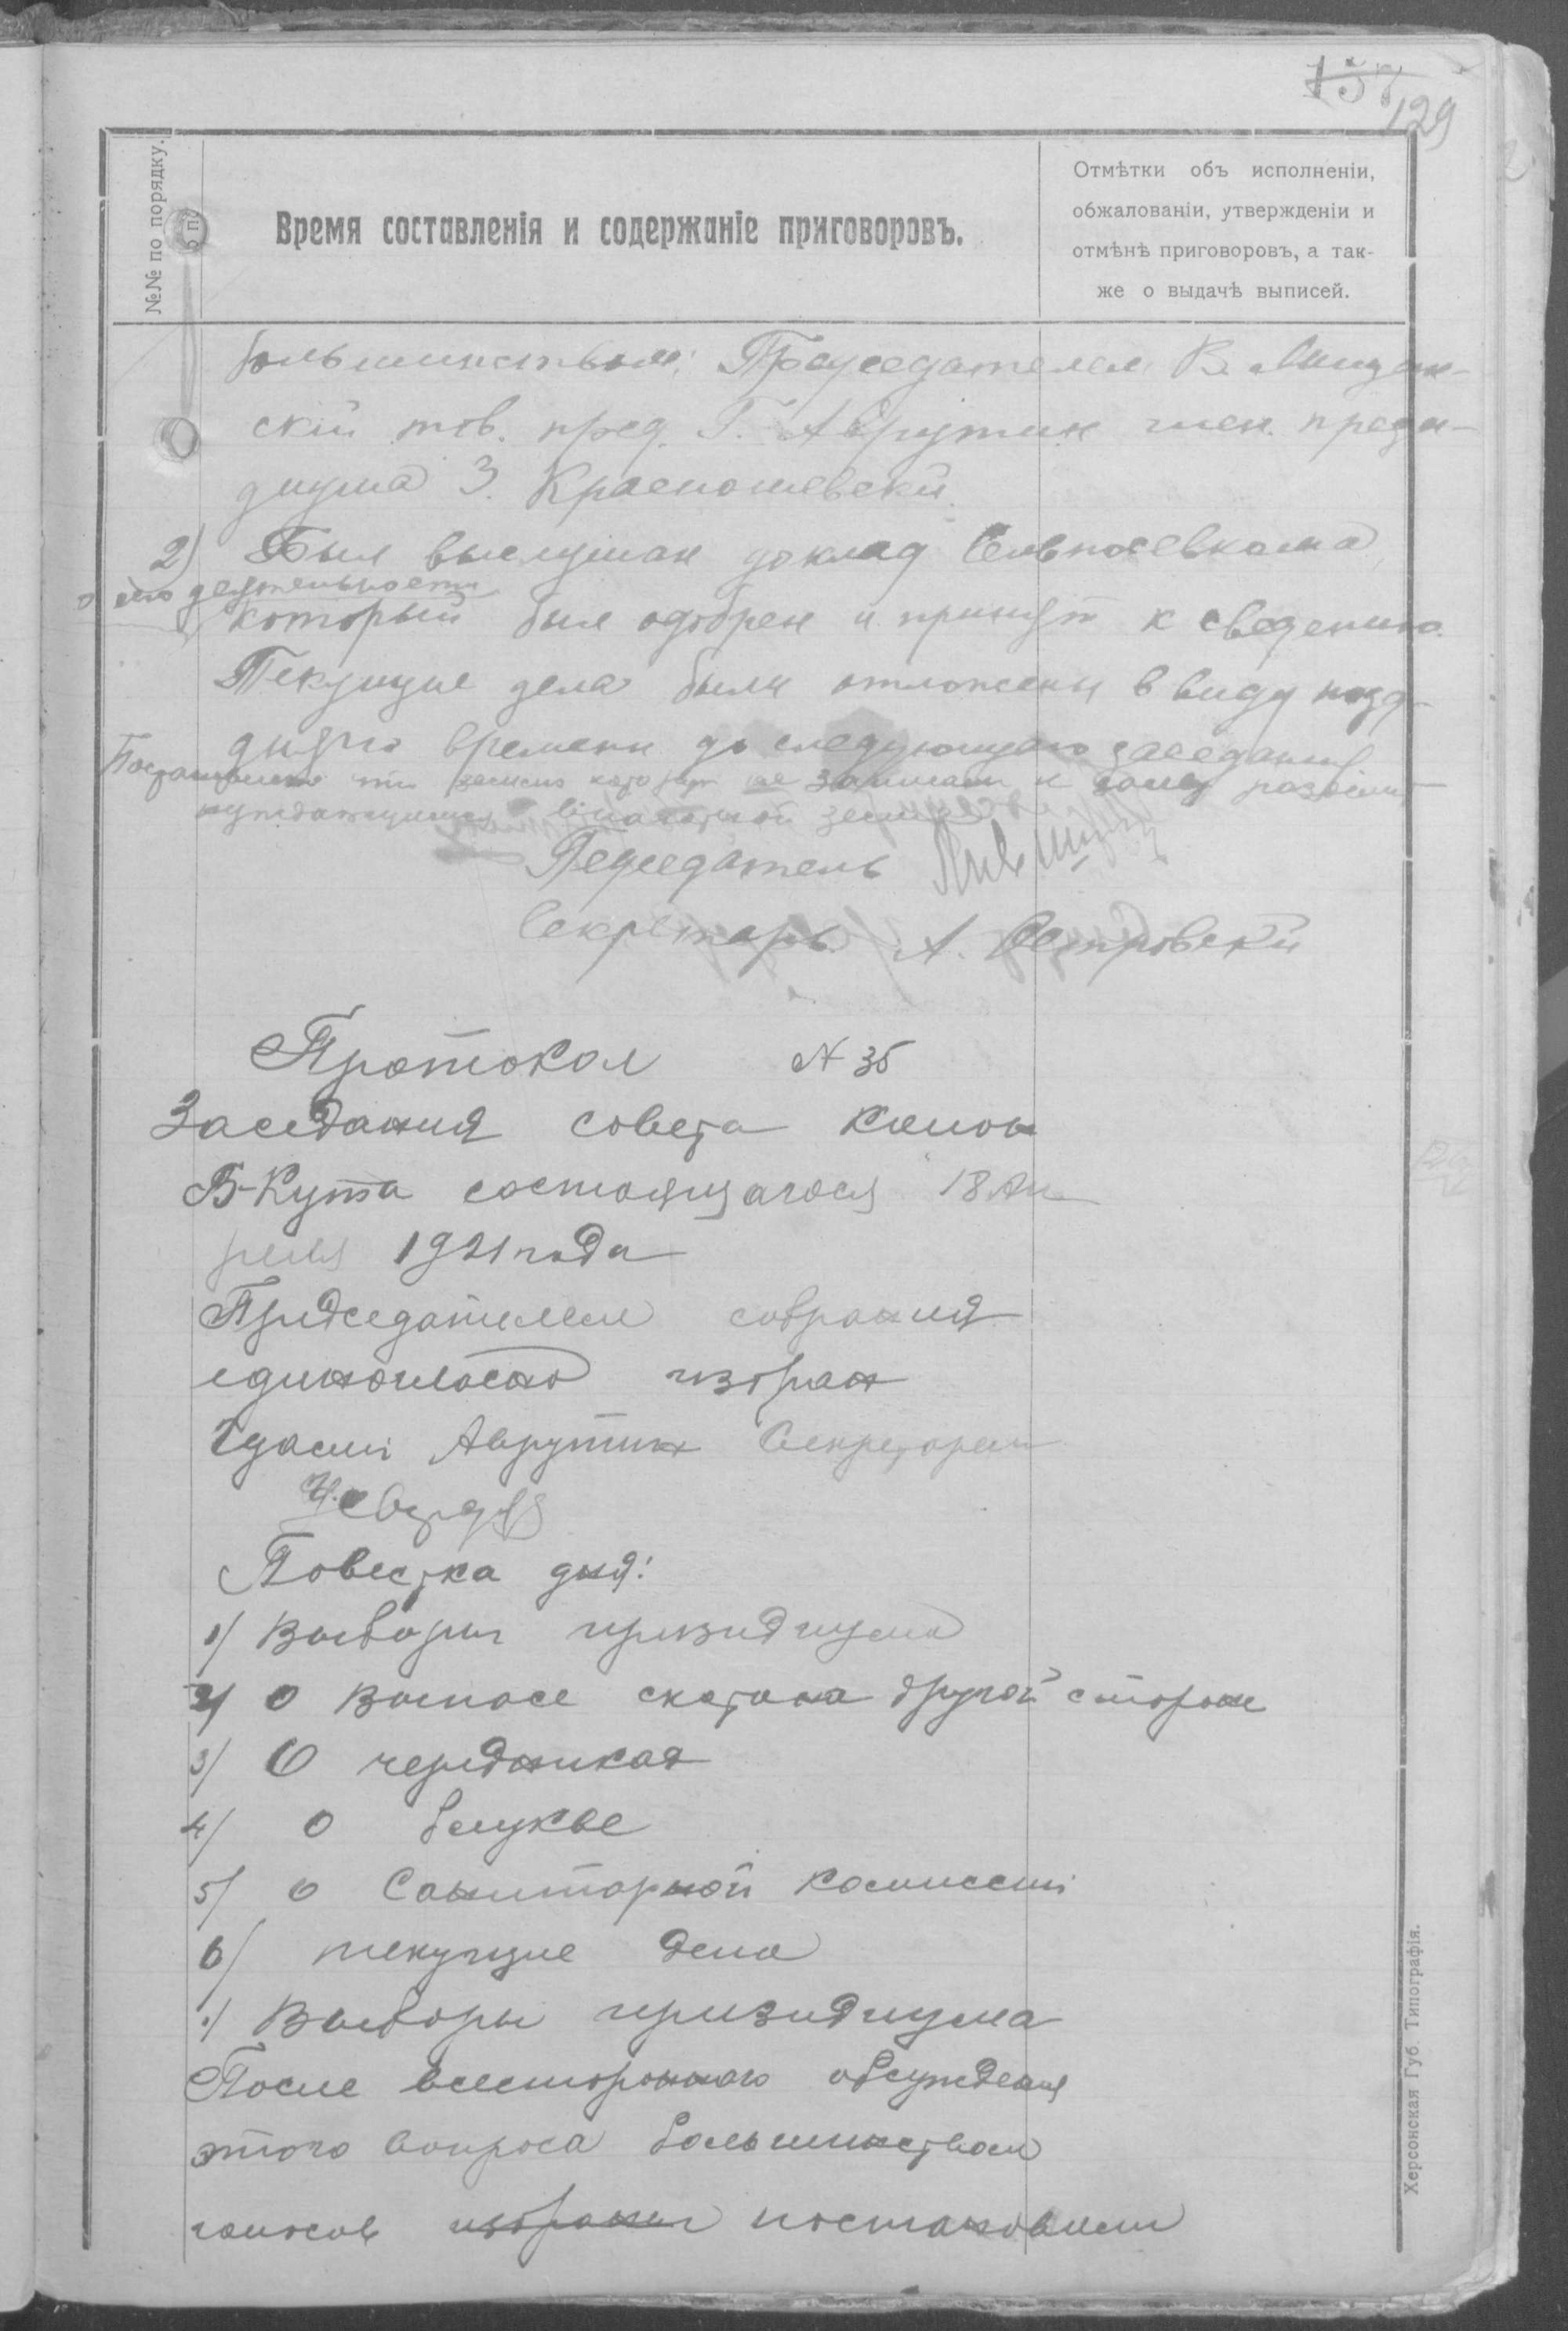 157
129
№№ по порядку.
Время составленія и содержаніе приговоровъ.
Отмѣтки объ исполненіи,
обжалованіи, утвержденіи и
отмѣнѣ приговоровъ, а так-
же о выдачѣ выписей.
большинством: Председателем В.
ский тов. пред. Г. Аврутин член. прези-
диума З.
2) Был выслушан доклад Сельпосевкома
о его деятельности
который был одобрен и принят к сведению.
Текущие дела были отложены в виду позд-
няго времени до следующаго заседания
Постановлено что не записат и
нуждающимся землей
Педседатель
Секретарь А. Островский
Протокол № 35
Заседания совета колон
Б-Кута состоящагося 18 Ап
реля 1921 года
Придседателем собрания
единогласно избран
Аврутин Секретарем
Повестка дня:
1/ Выборы призидиума
2/ О выпасе скота на другой стороне
3/ О чередниках
4/ О
5/ О Санитарной комиссіи
6/ текущие дела
1/ Выборы призидиума
После всесторонняго обсуждения
этого вопроса большинством
голосов избраны постановили
Херсонская Губ. Типографія.